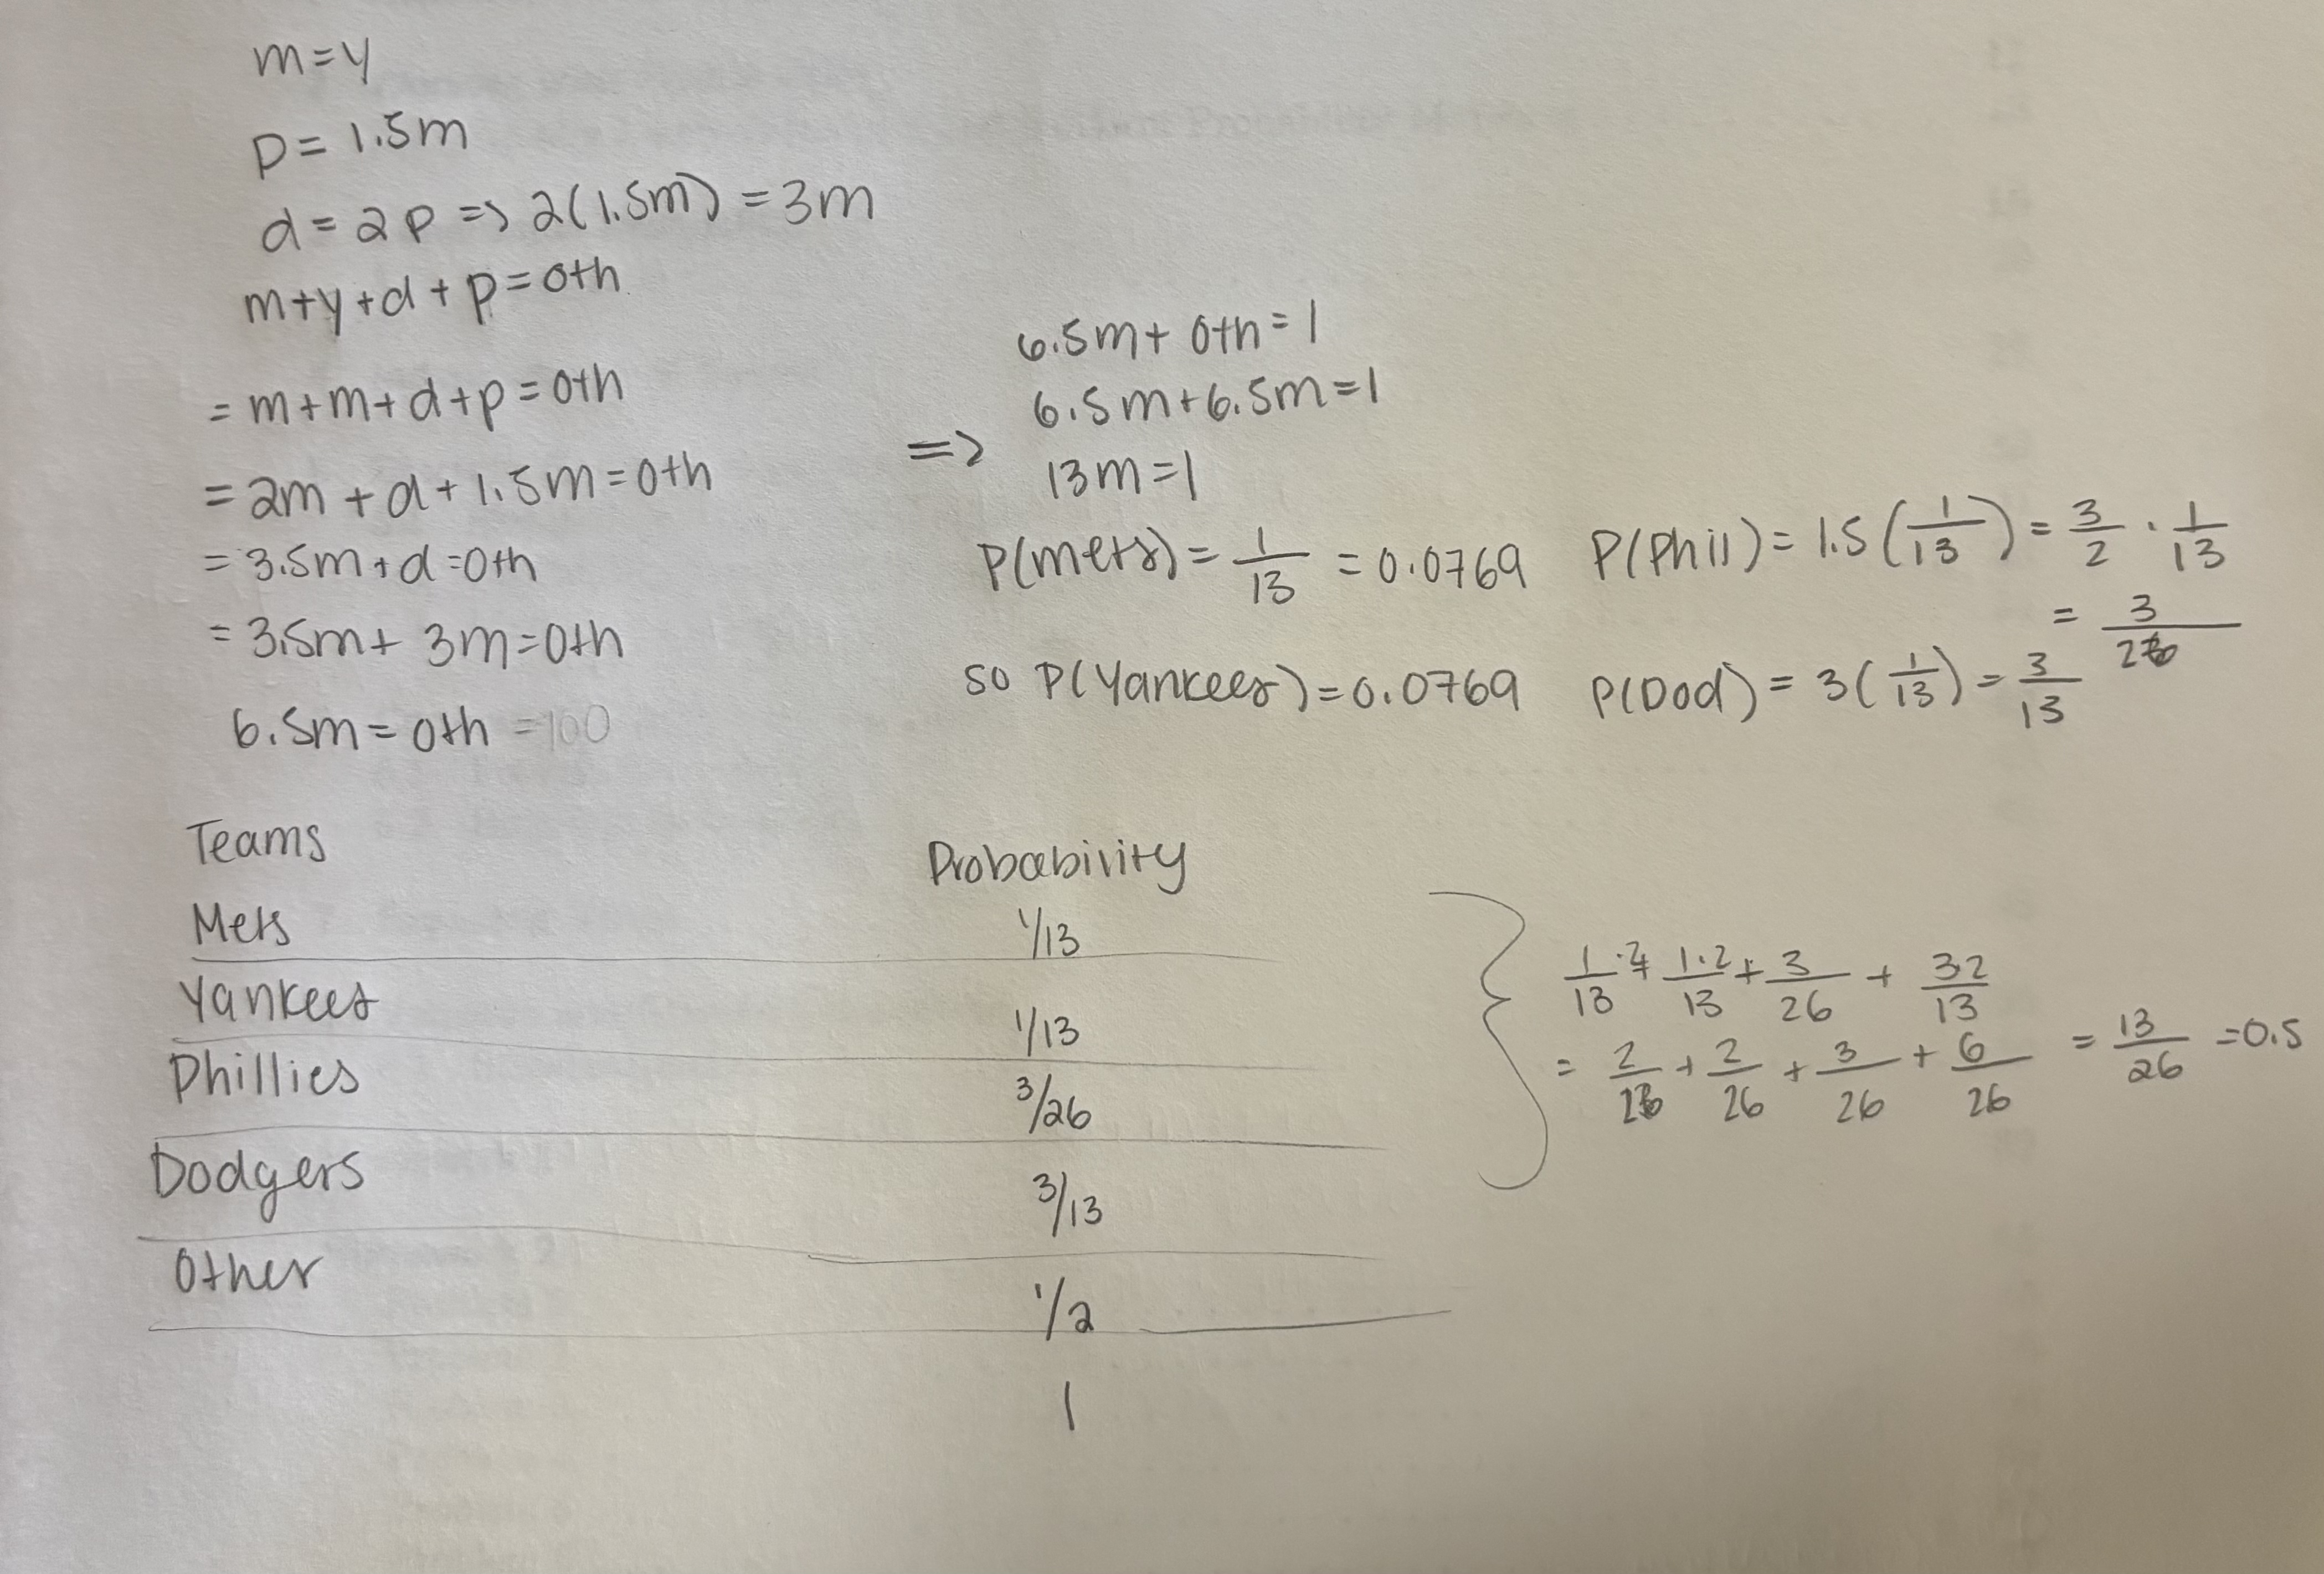 m=y
p= 1.5m
d=2p => 2(1.5m) = 3m
m+y+d+p=oth
= m+m+d+p=oth
= 2m+d+1.5m=oth
= 3.5m+d=oth
= 3.5m+ 3m=oth
6.5m=oth =100
6.5m+ oth=1
=> 6.5m+6.5m=1
13m=1
P(mets)= 1/13 = 0.0769
so P(Yankees)=0.0769
P(Phil)= 1.5(1/13)= 3/2 · 1/13
= 3/26
P(Dod)= 3(1/13)= 3/13
Teams Probability
Mets 1/13
Yankees 1/13
Phillies 3/26
Dodgers 3/13
Other 1/2
1
1/13 ·2 + 1·2/13 + 3/26 + 3·2/13
= 2/26 + 2/26 + 3/26 + 6/26 = 13/26 =0.5